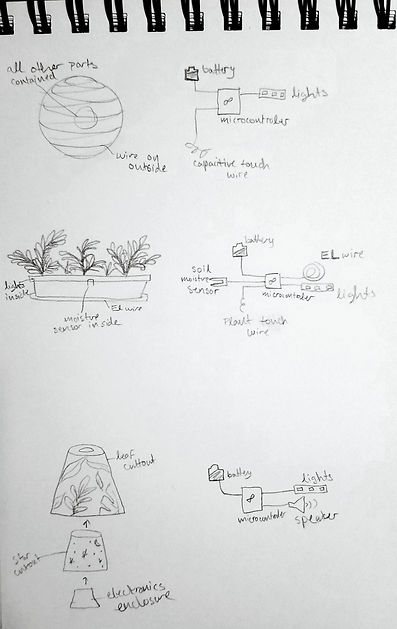 all other parts
contained
wire on
outside
battery
lights
microcontroler
capacitive touch
wire
lights
inside
EL wire
moisture
sensor inside
battery
EL wire
soil
moisture
sensor
microcontroler
lights
Plant touch
wire
leaf
cuttout
star
cuttout
electronics
enclosure
battery
lights
microcontroler
speaker